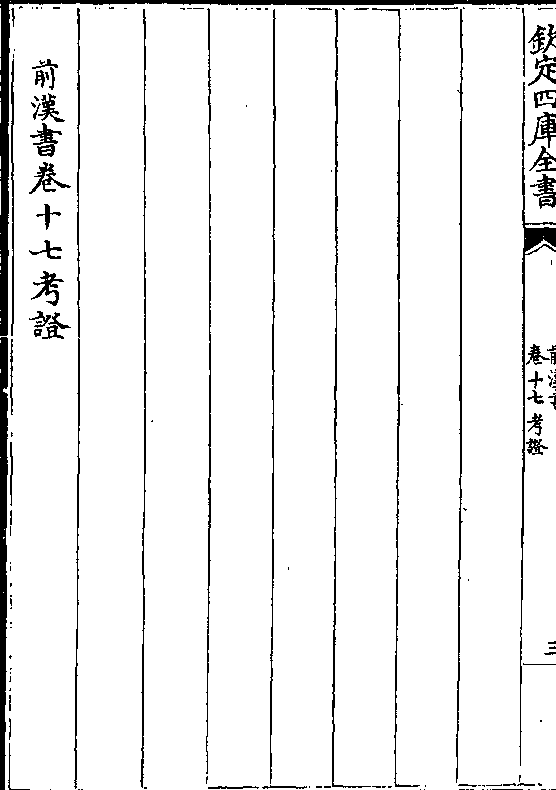 欽定四庫全書
前漢書
卷十七考證
三
前漢書卷十七考證